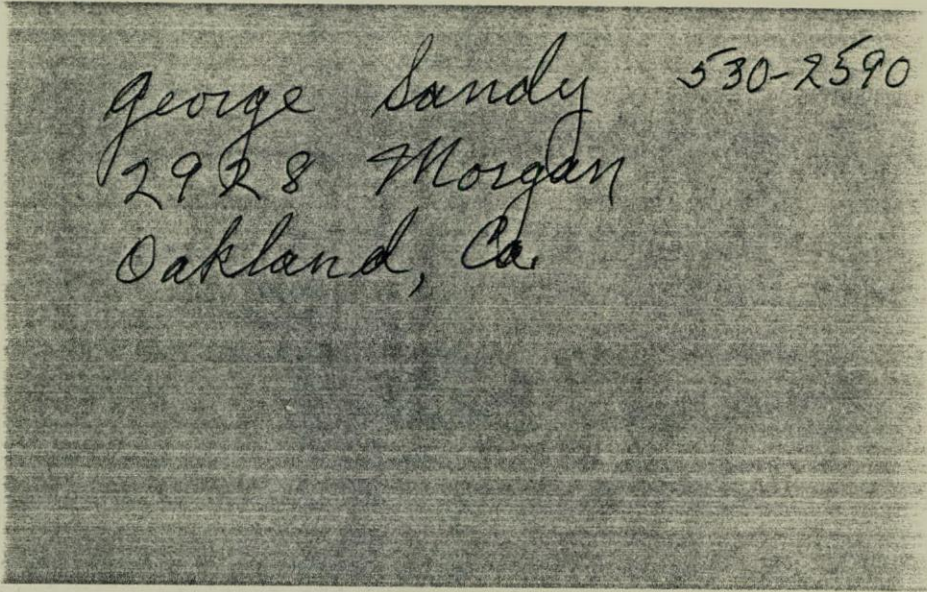 George Sandy 530-2590
2928 Morgan
Oakland, Ca.